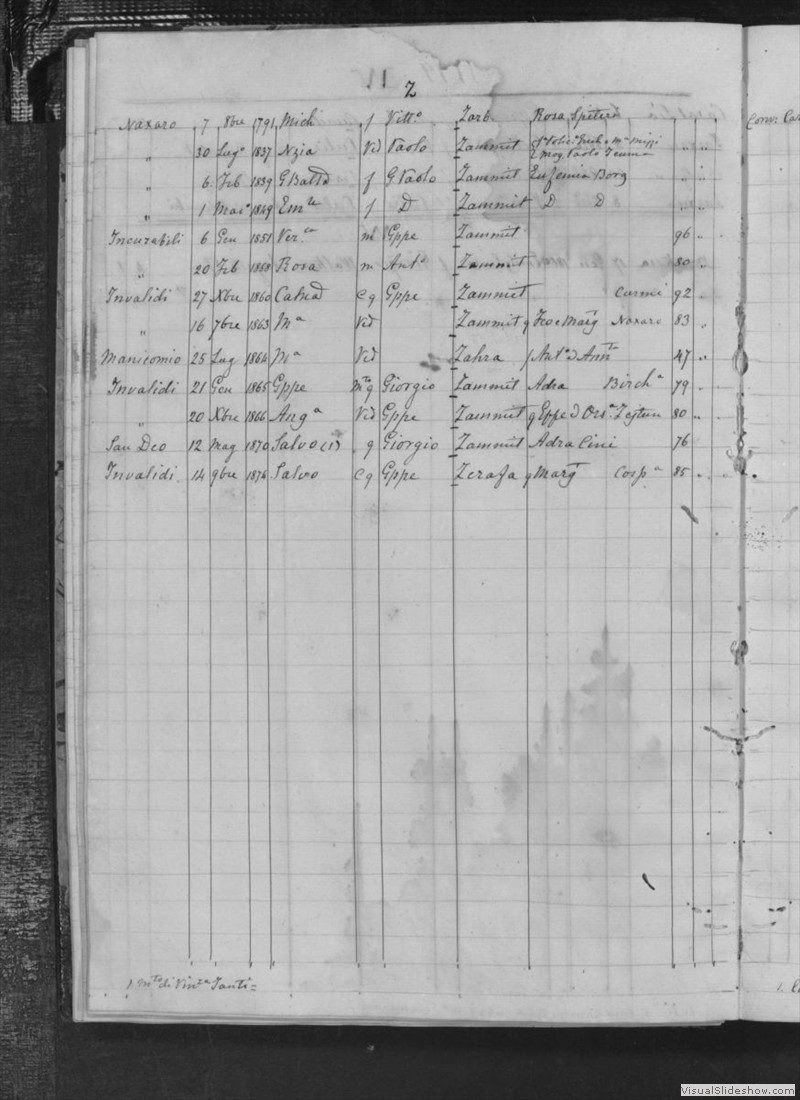 Z
Naxaro 7 8bre 1791 Mich f Vittº Zarb Rosa Spiteri
„ 30 Lugº 1837 Nzia Ved Paolo Zammit
„ 6 Feb 1839 G Batta f G Paolo Zammit Eufemia Borg „ „
„ 1 Marº 1849 Emle f D Zammit D D „ „
Incurabili 6 Gen 1851 Verca m Gppe Zammit 96 „
„ 20 Feb 1858 Rosa m Antº Zammit 80 „
Invalidi 27 Xbre 1860 Catna C q Gppe Zammit Curmi 92 „
„ 16 7bre 1863 Mª Ved Zammit q Naxaro 83 „
Manicomio 25 Lug 1864 Mª Ved Zahra f Antº d 47 „
Invalidi 21 Gen 1865 Gppe Mto q Giorgio Zammit Adra Birchª 79 „
„ 20 Xbre 1866 Angª Ved Gppe Zammit q Gppe d Orsª Zejtun 80 „
San Deo 12 Mag 1870 Salvo (1) q Giorgio Zammit Adra Cini 76
Invalidi 14 9bre 1876 Salvo C q Gppe Zerafa q Marg Cospª 85 „
1 Mto di Vinza Santi =
VisualSlideshow.com